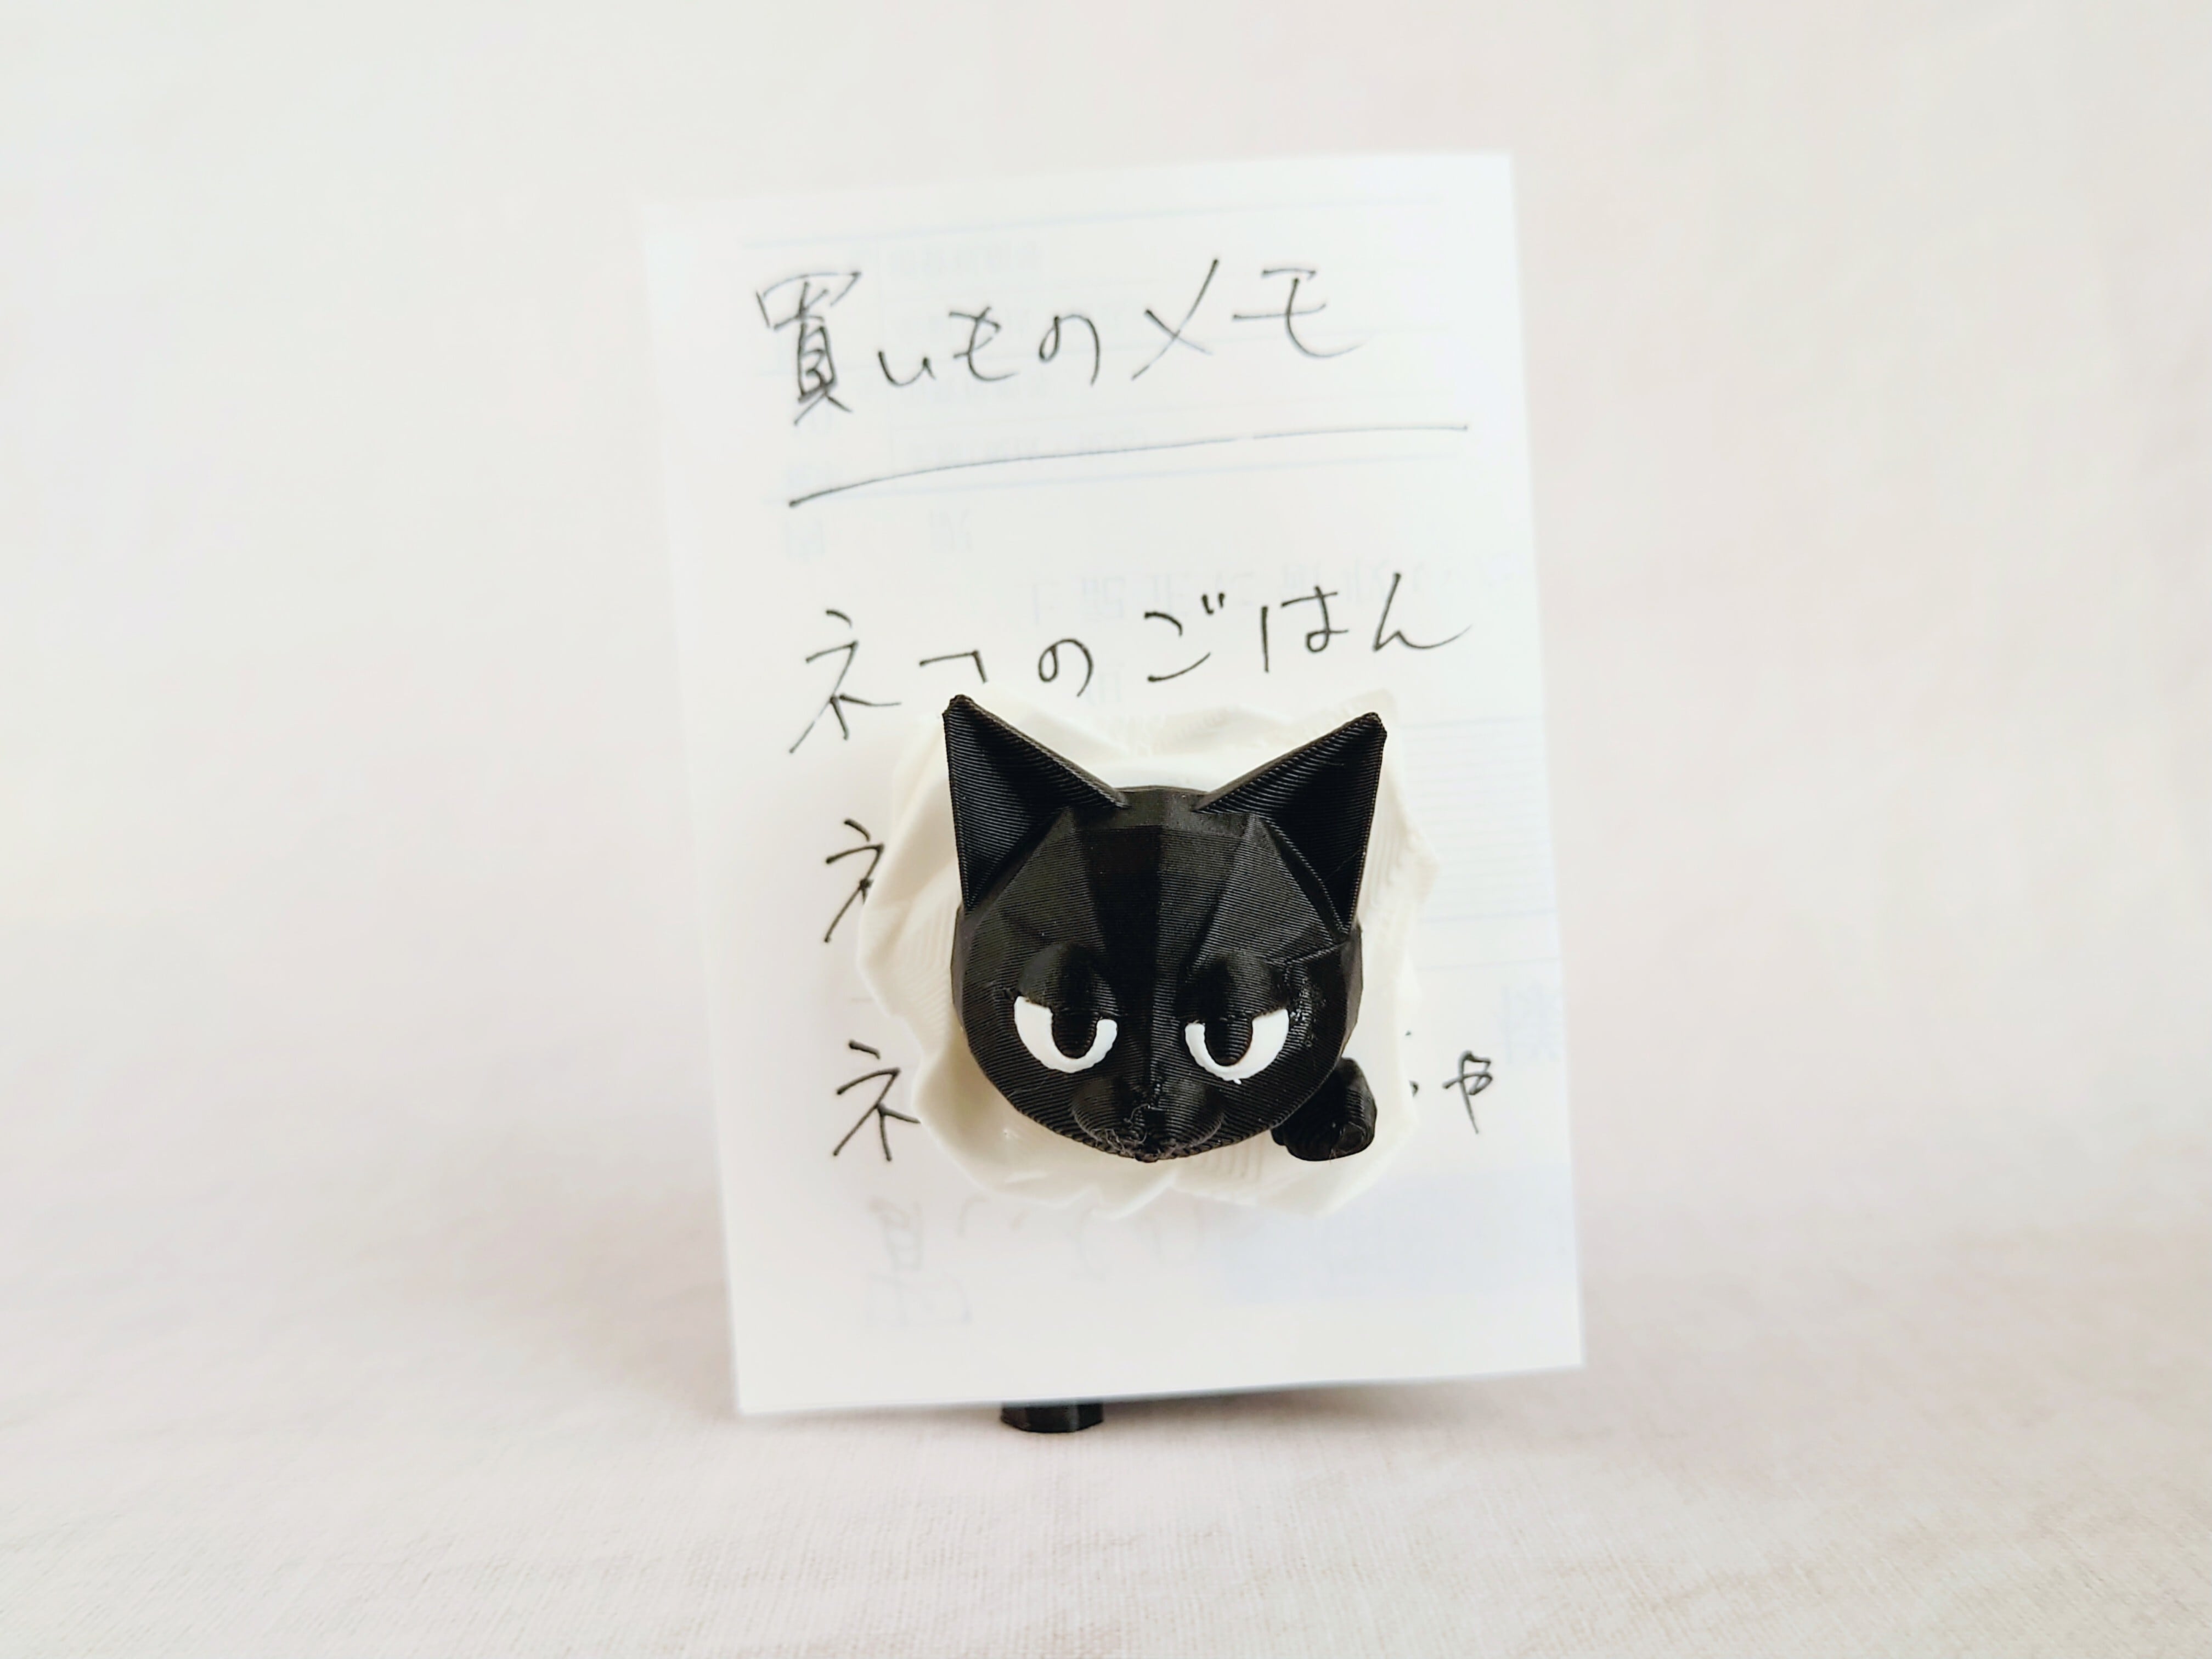 買いものメモ
ネコのごはん
ネ
ネ
ゃ